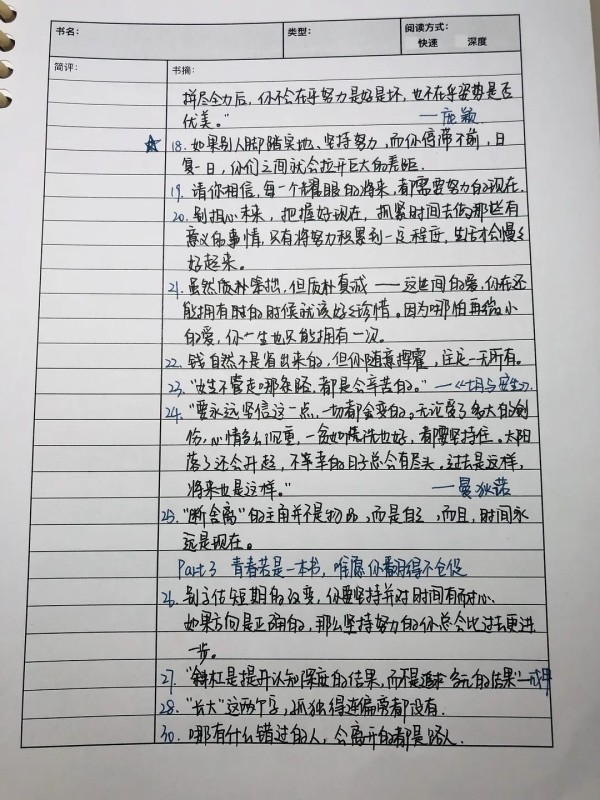 书名： 类型： 阅读方式：
快速 深度
简评： 书摘：
拼尽全力后，你不会在乎努力是好是坏，也不在乎姿势是否
优美。”
☆ 18. 如果别人脚踏实地、坚持努力，而你停滞不前，日
复一日，你们之间就会拉开巨大的差距.
19. 请你相信，每一个耀眼的将来，都需要努力的现在.
20. 别担心未来，把握好现在，抓紧时间去做那些有
意义的事情，只有将努力积累到一定程度，生活才会慢慢
好起来。
21. 虽然质朴笨拙，但质朴真诚——这世间的爱，你在还
能拥有时的时候就该好好珍惜。因为哪怕再微小
的爱，你一生也只能拥有一次。
22. 钱自然不是省出来的，但你随意挥霍，注定一无所有。
23. “女生不管走哪条路，都是会辛苦的。”——《七月与安生》.
24. “要永远坚信这一点，一切都会变的。无论受了多大的创
伤，心情多么沉重，一贫如洗也好，都要坚持住。太阳
落了还会升起，不幸的日子总会有尽头。过去是这样，
将来也是这样。”
——曼狄诺
25. “断舍离”的主角并不是物品，而是自己，而且，时间永
远是现在。
Part 3 青春若是一本书，唯愿你翻得不仓促
26. 别高估短期的改变，你要坚持并对时间有耐心.
如果方向是正确的，那么坚持努力的你总会比过去更进
一步。
27. “斜杠是提升认知深度的结果，而不是追求多元的结果”
28. “长大”这两个字，孤独得连偏旁都没有.
30. 哪有什么错过的人，会离开的都是路人.